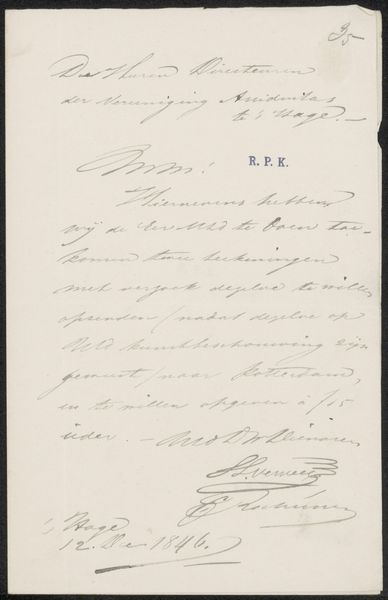 35
De Heeren Directeuren
der Vereeniging Assiduitas
te 's Hage.—
Mm!
R. P. K.
Hiernevens hebben
wij de Eer UEd te doen toe-
komen twee teekeningen
met verzoek dezelve te willen
opzenden / nadat dezelve op
UEd kunstbeschouwing zijn
geweest / naar Rotterdam,
en te willen opgeven à f15
ieder. — UEd DW Dienaren
's Hage
12. De 1846.